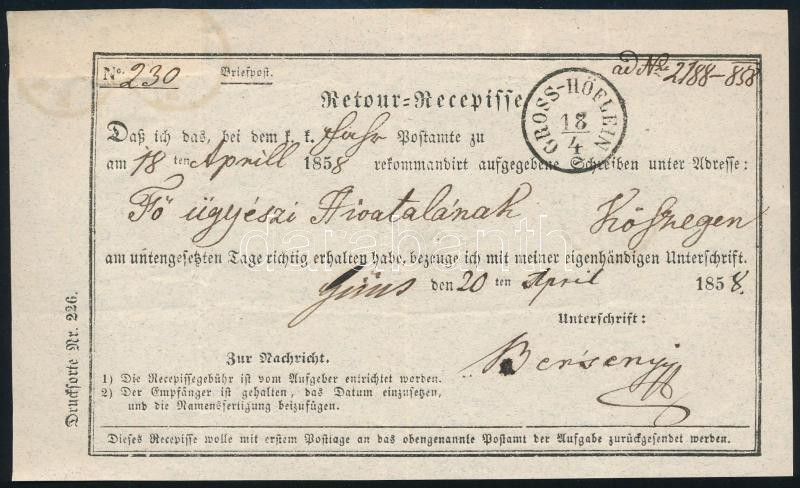 No. 230 Briefpost. ad No 2188-858
Retour=Recepisse
GROSS-HÖFLEIN
18
4
Daß ich das, bei dem k. k. Fahr Postamte zu
am 18 ten Aprill 1858 rekommandirt aufgegebene Schreiben unter Adresse:
Fö ügyészi Hivatalának Kőszegen
am untengesetzten Tage richtig erhalten habe, bezeuge ich mit meiner eigenhändigen Unterschrift.
Güns den 20 ten April 1858.
Unterschrift:
Bersenyi
Zur Nachricht.
1) Die Recepissegebühr ist vom Aufgeber entrichtet worden.
2) Der Empfänger ist gehalten, das Datum einzusetzen,
und die Namensfertigung beizufügen.
Dieses Recepisse wolle mit erstem Posttage an das obengenannte Postamt der Aufgabe zurückgesendet werden.
Drucksorte Nr. 226.
darabanth